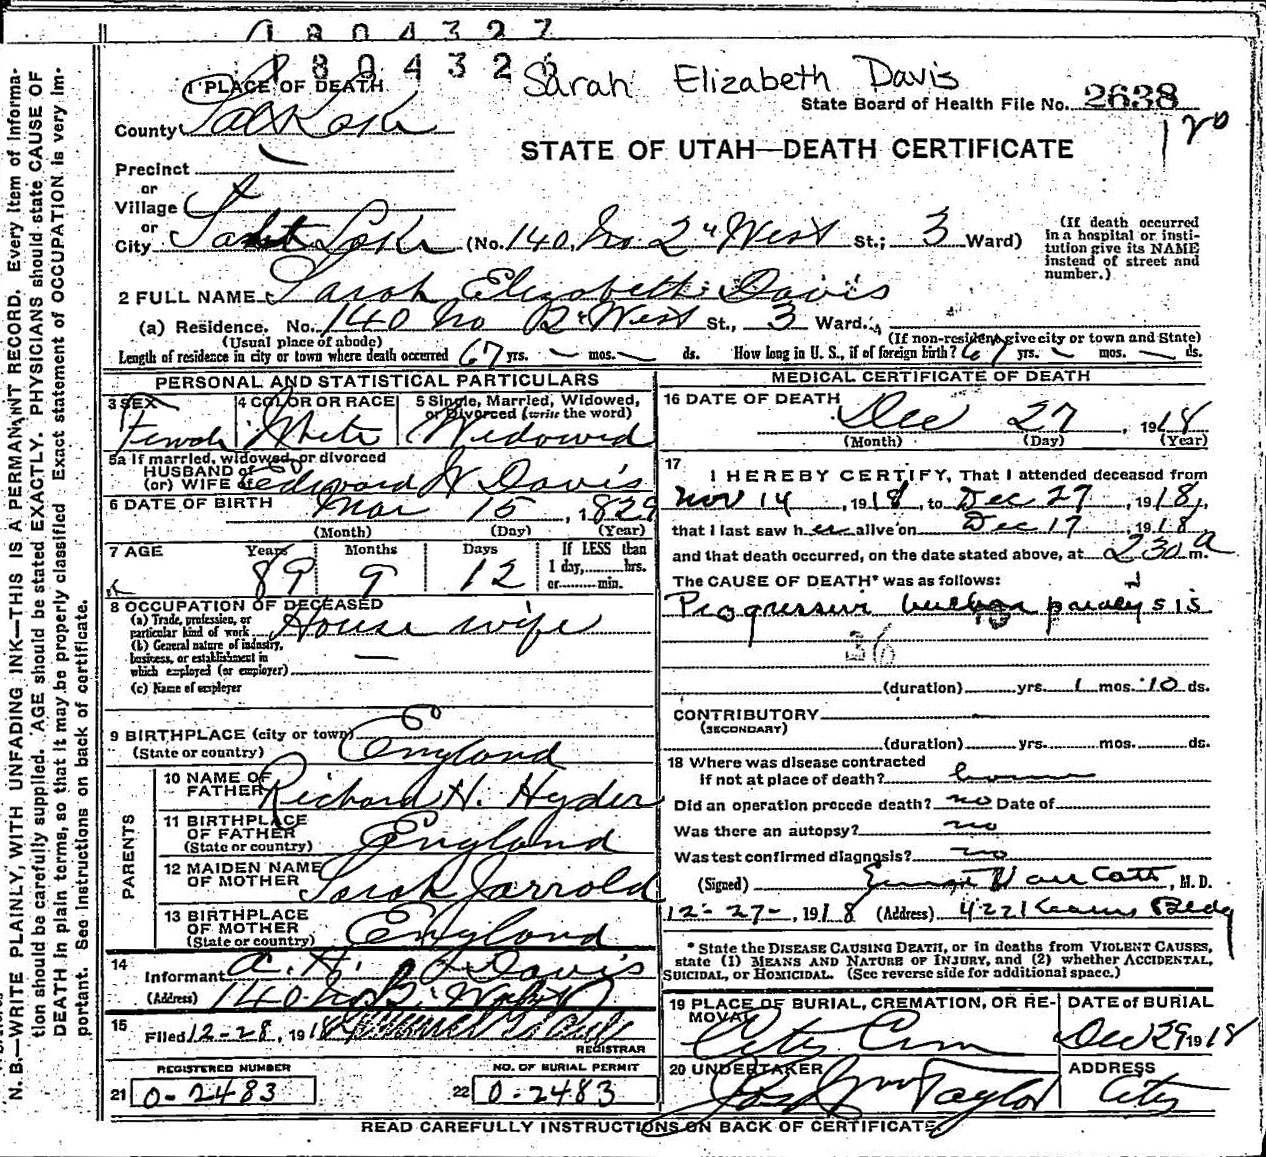 1804327
180432
Sarah Elizabeth Davis
State Board of Health File No. 2638
120
1 PLACE OF DEATH
County Salt Lake
STATE OF UTAH—DEATH CERTIFICATE
Precinct
or
Village
or
City Salt Lake (No. 140 No. 2" West St.; 3 Ward)
(If death occurred in a hospital or institution give its NAME instead of street and number.)
2 FULL NAME Sarah Elizabeth Davis
(a) Residence. No. 140 No 2" West St., 3 Ward.
(Usual place of abode) (If non-resident give city or town and State)
Length of residence in city or town where death occurred 67 yrs. — mos. — ds. How long in U. S., if of foreign birth? 67 yrs. — mos. — ds.
PERSONAL AND STATISTICAL PARTICULARS
3 SEX Female
4 COLOR OR RACE White
5 Single, Married, Widowed, or Divorced (write the word) Widowed
5a If married, widowed, or divorced
HUSBAND of
(or) WIFE of Edward W Davis
6 DATE OF BIRTH Mar 15, 1829
(Month) (Day) (Year)
7 AGE Years 89 Months 9 Days 12
If LESS than 1 day, hrs. or min.
8 OCCUPATION OF DECEASED
(a) Trade, profession, or particular kind of work House wife
(b) General nature of industry, business, or establishment in which employed (or employer) —
(c) Name of employer
9 BIRTHPLACE (city or town)
(State or country) England
PARENTS
10 NAME OF FATHER Richard H. Hyder
11 BIRTHPLACE OF FATHER (State or country) England
12 MAIDEN NAME OF MOTHER Sarah Jarrold
13 BIRTHPLACE OF MOTHER (State or country) England
14 Informant Davis
(Address) 140 No
15 Filed 12-28, 1918
REGISTRAR
REGISTERED NUMBER
21 0-2483
NO. OF BURIAL PERMIT
22 0-2483
MEDICAL CERTIFICATE OF DEATH
16 DATE OF DEATH Dec 27, 1918
(Month) (Day) (Year)
17 I HEREBY CERTIFY, That I attended deceased from
Nov 14, 1918, to Dec 27, 1918,
that I last saw her alive on Dec 17, 1918
and that death occurred, on the date stated above, at 230 a m.
The CAUSE OF DEATH* was as follows:
Progressive bulbar paralysis
36
(duration) yrs. 1 mos. 10 ds.
CONTRIBUTORY
(SECONDARY)
(duration) yrs. mos. ds.
18 Where was disease contracted
if not at place of death? home
Did an operation precede death? no Date of
Was there an autopsy? no
Was test confirmed diagnosis? no
(Signed) Van Cott, M. D.
12-27-, 1918 (Address) 4221 Kearns Bldg
* State the DISEASE CAUSING DEATH, or in deaths from VIOLENT CAUSES, state (1) MEANS AND NATURE OF INJURY, and (2) whether ACCIDENTAL, SUICIDAL, or HOMICIDAL. (See reverse side for additional space.)
19 PLACE OF BURIAL, CREMATION, OR REMOVAL City Cem
DATE of BURIAL Dec 29 1918
20 UNDERTAKER Jos Wm Taylor
ADDRESS City
READ CAREFULLY INSTRUCTIONS ON BACK OF CERTIFICATE.
N. B.—WRITE PLAINLY, WITH UNFADING INK—THIS IS A PERMANENT RECORD. Every item of information should be carefully supplied. AGE should be stated EXACTLY. PHYSICIANS should state CAUSE OF DEATH in plain terms, so that it may be properly classified. Exact statement of OCCUPATION is very important. See instructions on back of certificate.